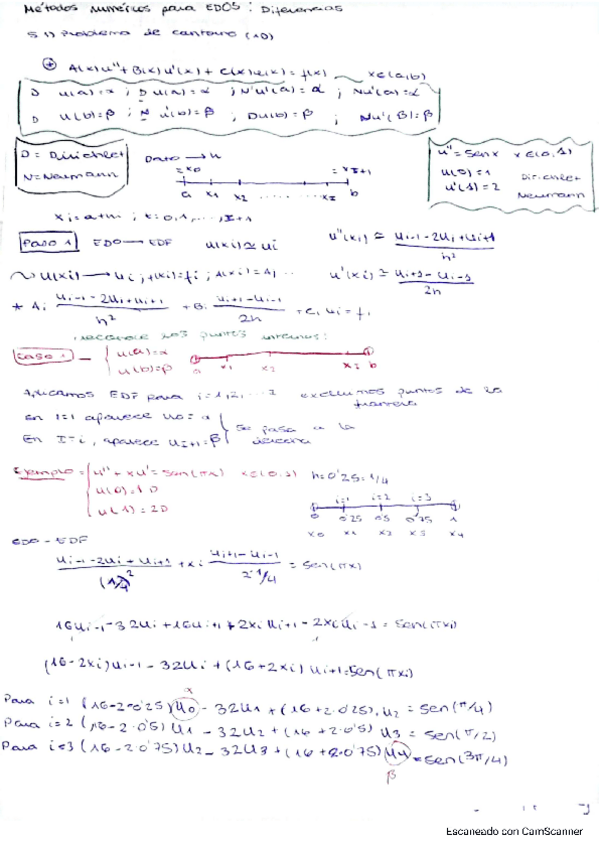 Métodos numéricos para EDOS: Diferencias
5.1) Problema de contorno (1D)
A(x)u''+B(x)u'(x)+C(x)u(x)=f(x) x∈(a,b)
D u(a)=α ; Du(a)=α ; N u'(a)=α ; Nu'(a)=α
D u(b)=β ; N u'(b)=β ; Du(b)=β ; Nu'(b)=β
D = Dirichlet
N = Neumann
Dato → n
=x0 =xI+1
a x1 x2 ........ xI b
u''=senx x∈(0,1)
u(0)=1 Dirichlet
u'(1)=2 Neumann
i=0,1,...,I+1
Paso 1 EDO → EDF u(xi)≃ui u''(xi)≃ (ui-1-2ui+ui+1)/h²
u(xi)→ui ; f(xi)=fi ; A(xi)=Ai ... u'(xi)≃ (ui+1-ui-1)/2h
* Ai (ui-1-2ui+ui+1)/h² + Bi (ui+1-ui-1)/2h + Ci ui = fi
puntos internos:
Caso 1 - { u(a)=α u(b)=β
x1 x2 x= b
Aplicamos EDF para i=1,2,...I excluimos puntos de la frontera
En i=1 aparece u0=α
En I=i, aparece uI+1=β } se pasa a la derecha
Ejemplo = { u''+xu'=sen(πx) x∈(0,1) h=0'25=1/4
u(0)=1 D
u(1)=2 D
i=1 i=2 i=3
0 0'25 0'5 0'75 1
x0 x1 x2 x3 x4
EDO - EDF
(ui-1-2ui+ui+1)/(1/4)² + xi (ui+1-ui-1)/(2·1/4) = sen(πx)
16ui-1-32ui+16ui+1+2xi ui+1-2xi ui-1=sen(πxi)
(16-2xi)ui-1-32ui+(16+2xi)ui+1=sen(πxi)
α
Para i=1 (16-2·0'25)u0-32u1+(16+2·0'25)·u2=sen(π/4)
Para i=2 (16-2·0'5)u1-32u2+(16+2·0'5)u3=sen(π/2)
Para i=3 (16-2·0'75)u2-32u3+(16+2·0'75)u4=sen(3π/4)
β
Escaneado con CamScanner